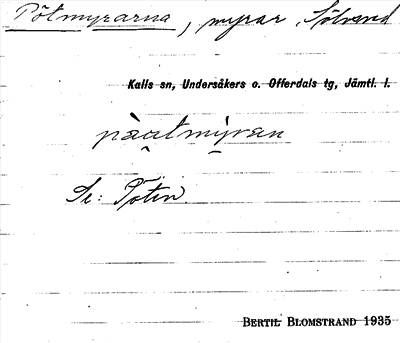 Pötmyrarna, myrar, Sölvsved
Kalls sn, Undersåkers o. Offerdals tg, Jämtl. l.
pàatmỳran
Se: Pöten.
BERTIL BLOMSTRAND 1935